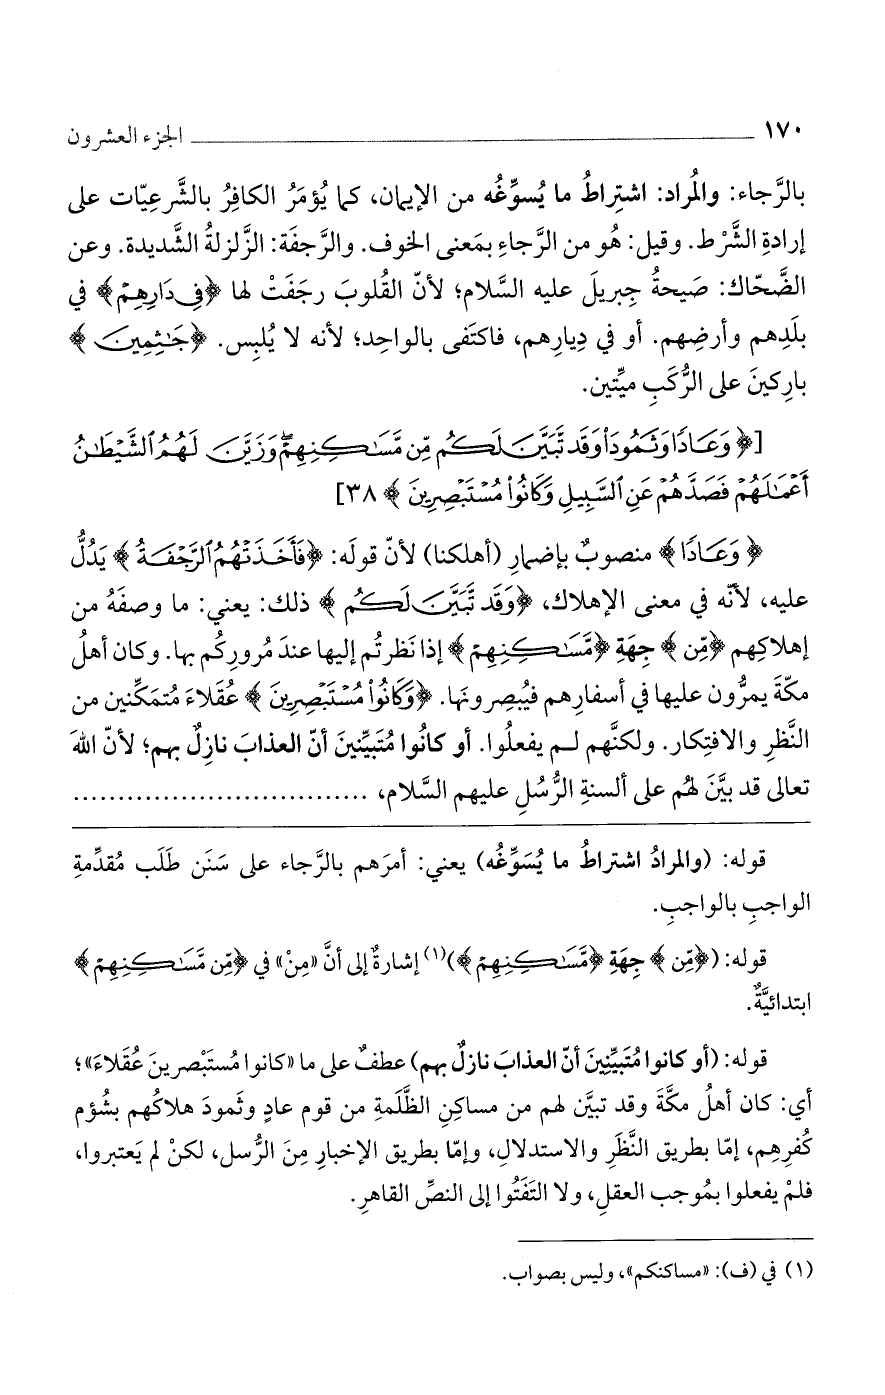 ١٧٠ الجزء العشرون
بالرَّجاء: والمُراد: اشتِراطُ ما يُسوِّغُه من الإيمان، كما يُؤمَرُ الكافِرُ بالشَّرعِيّات على
إرادةِ الشَّرْط. وقيل: هُو من الرَّجاءِ بمَعنى الخوف. والرَّجفَة: الزَّلزلةُ الشَّديدة. وعن
الضَّحّاك: صَيحةُ جِبريلَ عليه السَّلام؛ لأنّ القُلوبَ رجَفَتْ لها ﴿فِى دَارِهِمْ﴾ في
بلَدِهم وأرضِهم. أو في دِيارِهم، فاكتَفى بالواحِد؛ لأنه لا يُلبِس. ﴿جَٰثِمِينَ﴾
بارِكينَ على الرُّكَبِ ميِّتين.
[﴿وَعَادًا وَثَمُودَا۟ وَقَد تَّبَيَّنَ لَكُم مِّن مَّسَٰكِنِهِمْ ۖ وَزَيَّنَ لَهُمُ ٱلشَّيْطَٰنُ
أَعْمَٰلَهُمْ فَصَدَّهُمْ عَنِ ٱلسَّبِيلِ وَكَانُوا۟ مُسْتَبْصِرِينَ﴾ ٣٨]
﴿وَعَادًا﴾ منصوبٌ بإضمارِ (أهلكنا) لأنّ قولَه: ﴿فَأَخَذَتْهُمُ ٱلرَّجْفَةُ﴾ يَدُلُّ
عليه، لأنّه في معنى الإهلاك، ﴿وَقَد تَّبَيَّنَ لَكُم﴾ ذلك: يعني: ما وصفَهُ من
إهلاكِهم ﴿مِّن﴾ جِهَةِ ﴿مَّسَٰكِنِهِمْ﴾ إذا نَظرتُم إليها عندَ مُرورِكُم بها. وكان أهلُ
مكّةَ يمرُّون عليها في أسفارِهم فيُبصِرونَها. ﴿وَكَانُوا۟ مُسْتَبْصِرِينَ﴾ عُقلاءَ مُتمَكِّنين من
النَّظرِ والافتِكار. ولكنَّهم لـم يفعلُوا. أو كانُوا مُتبيِّنينَ أنّ العذابَ نازِلٌ بهم؛ لأنّ اللهَ
تعالى قد بيَّنَ لهُم على ألسنةِ الرُّسُلِ عليهم السَّلام، ................................
قوله: (والمرادُ اشتراطُ ما يُسَوِّغُه) يعني: أمرَهم بالرَّجاء على سَنَن طَلَب مُقدِّمةِ
الواجبِ بالواجبِ.
قوله: (﴿مِّن﴾ جِهَةِ ﴿مَّسَٰكِنِهِمْ﴾)(١) إشارةٌ إلى أنَّ «مِنْ» في ﴿مِّن مَّسَٰكِنِهِمْ﴾
ابتدائيَّةٌ.
قوله: (أو كانوا مُتَبيِّنِينَ أنّ العذابَ نازلٌ بهم) عطفٌ على ما «كانوا مُستَبْصرينَ عُقَلاءَ»؛
أي: كان أهلُ مكَّةَ وقد تبيَّن لهم من مساكِنِ الظَّلَمةِ من قوم عادٍ وثَمودَ هلاكُهم بشُؤم
كُفرِهِم، إمّا بطريق النَّظَرِ والاستدلالِ، وإمّا بطريق الإخبارِ مِنَ الرُّسل، لكنْ لم يَعتبروا،
فلمْ يفعلوا بمُوجب العقلِ، ولا التَفَتُوا إلى النصِّ القاهرِ.
(١) في (ف): «مساكنكم»، وليس بصواب.